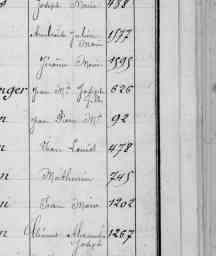 Joseph Marie 458
Julien 1577
Marie
Jérôme Marie 1595
nger Jean Me Joseph 626
Gilles
n Jean Pierre Me 92
n Jean Louis 478
n Mathurin 745
n Jean Marie 1202
n Clément Alexandre 1267
Joseph